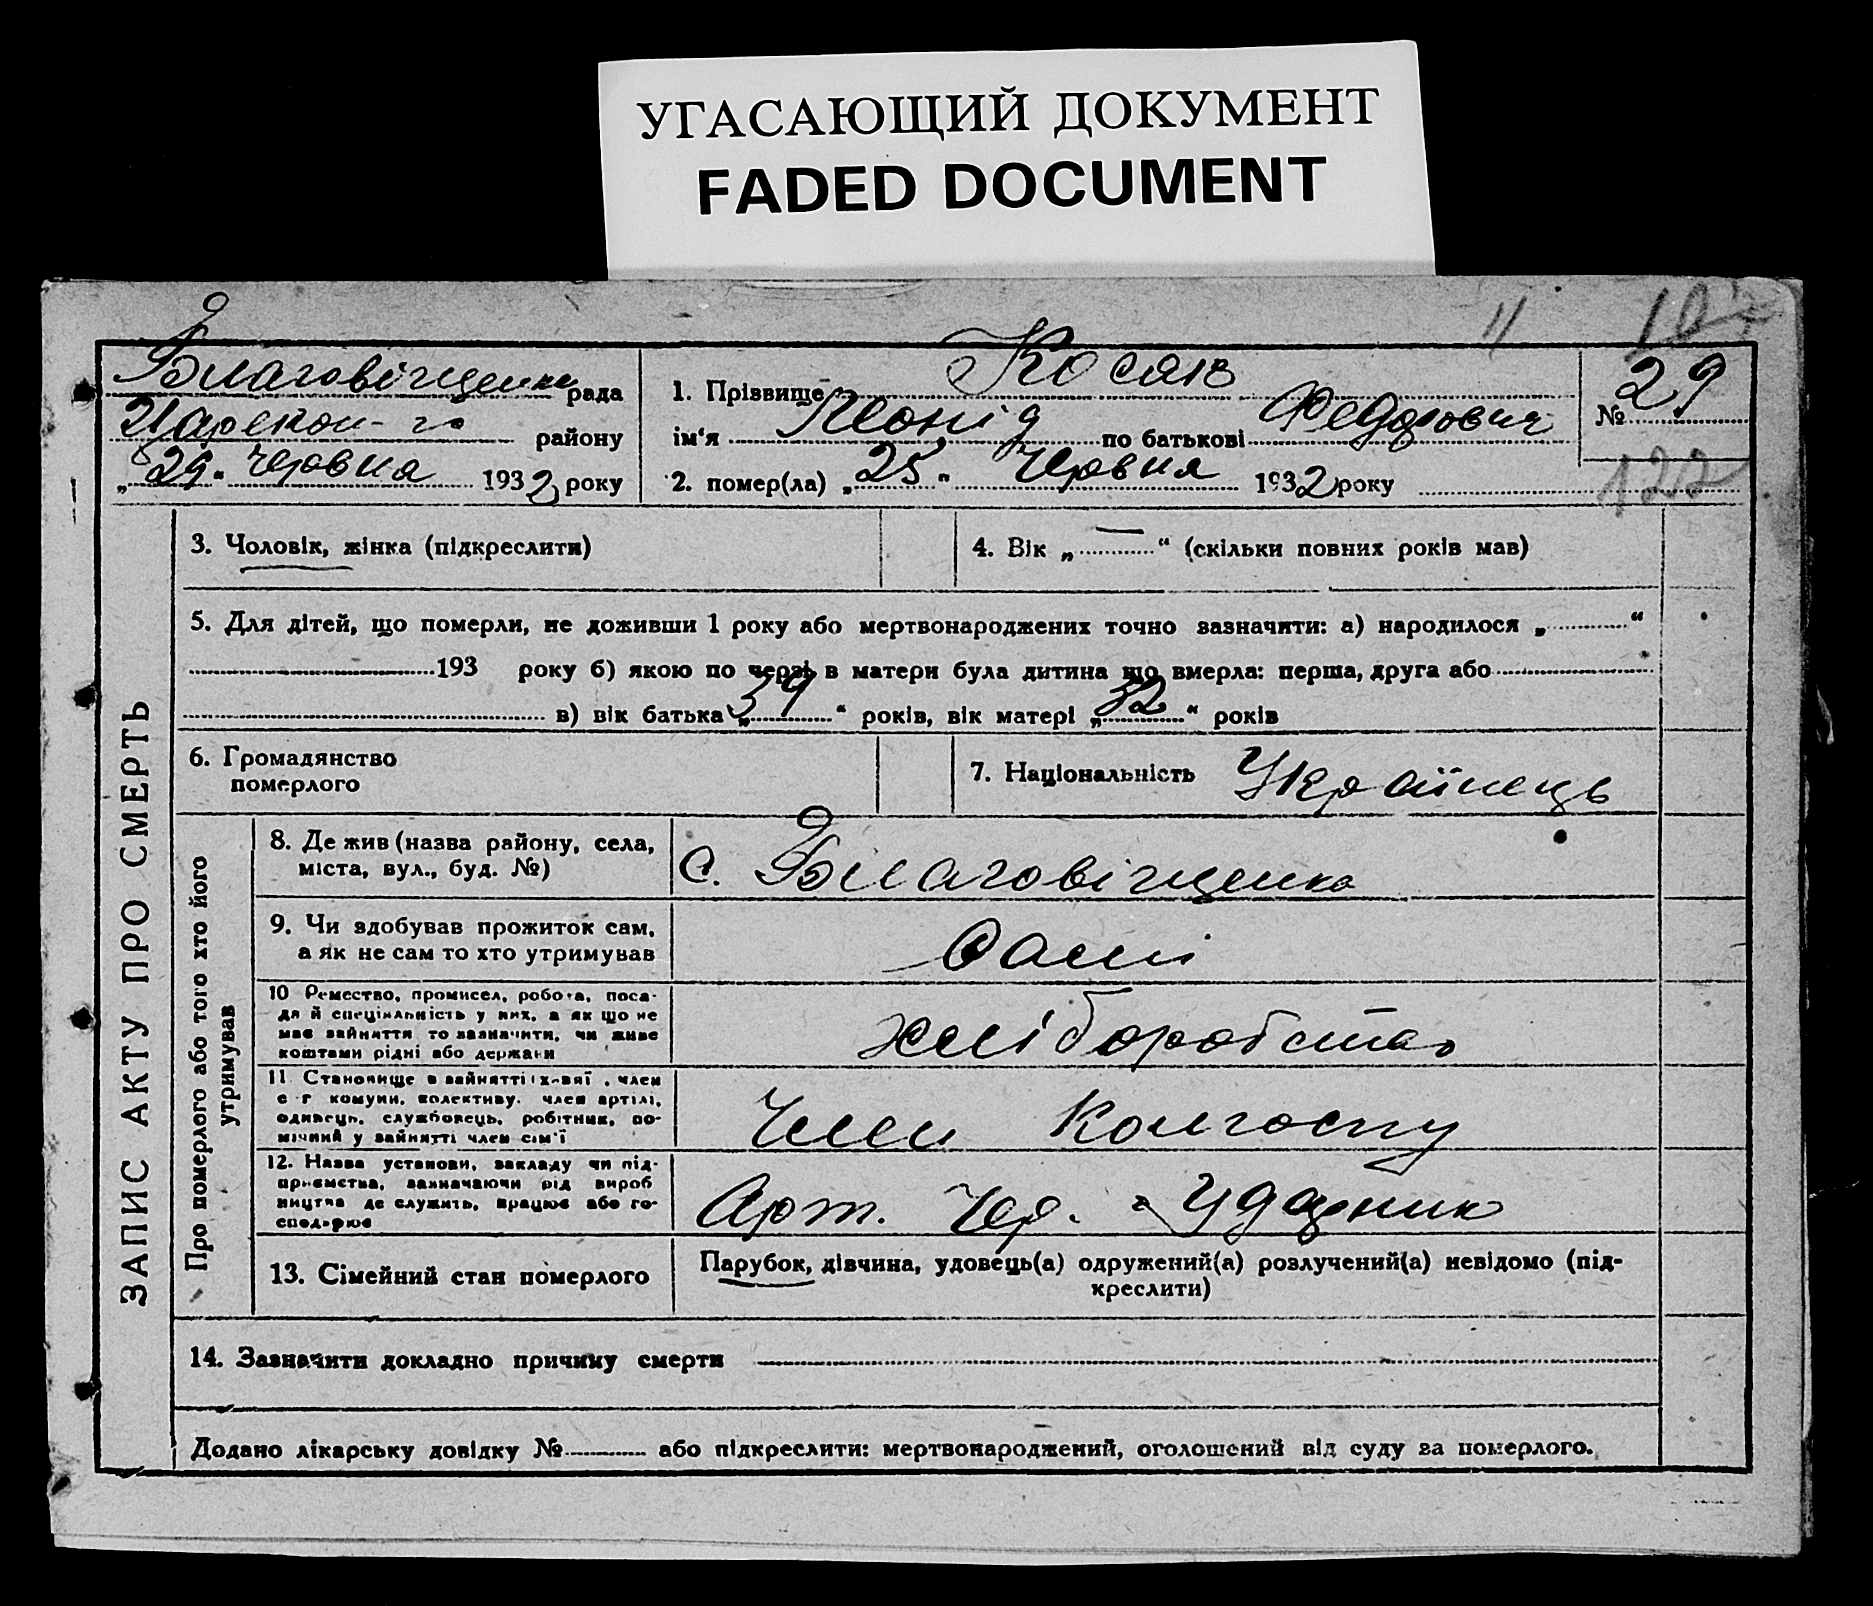 УГАСАЮЩИЙ ДОКУМЕНТ
FADED DOCUMENT
11
29
122
Благовіщенка рада
району
„29“ Червня 1932 року
1. Прізвище Косяк
ім'я Леонід по батькові Федорович
№ 29
2. помер(ла) „25“ Червня 1932 року
ЗАПИС АКТУ ПРО СМЕРТЬ
3. Чоловік, жінка (підкреслити)
4. Вік „—“ (скільки повних років мав)
5. Для дітей, що померли, не доживши 1 року або мертвонароджених точно зазначити: а) народилося „ “
193 року б) якою по черзі в матери була дитина що вмерла: перша, друга або
в) вік батька „39“ років, вік матері „32“ років
6. Громадянство
померлого
7. Національність Українець
Про померлого або того хто його
утримував
8. Де жив (назва району, села,
міста, вул., буд. №)
с. Благовіщенка
9. Чи здобував прожиток сам,
а як не сам то хто утримував
Самі
10 Ремество, промисел, робота, поса-
да й спеціяльність у них, а як що не
має зайняття то зазначити, чи живе
коштами рідні або держави
хліборобство
11. Становище в зайнятті: член
с-г комуни, колективу, член артілі,
одинець, службовець, робітник, по-
мічний у зайнятті член сім'ї
Член Колгоспу
12. Назва установи, закладу чи під-
приємства, зазначаючи рід вироб
ництва де служить, працює або го-
сподарює
Арт. Чер. Ударник
13. Сімейний стан померлого
Парубок, дівчина, удовець(а) одружений(а) розлучений(а) невідомо (під-
креслити)
14. Зазначити докладно причину смерти
Додано лікарську довідку № або підкреслити: мертвонароджений, оголошений від суду за померлого.